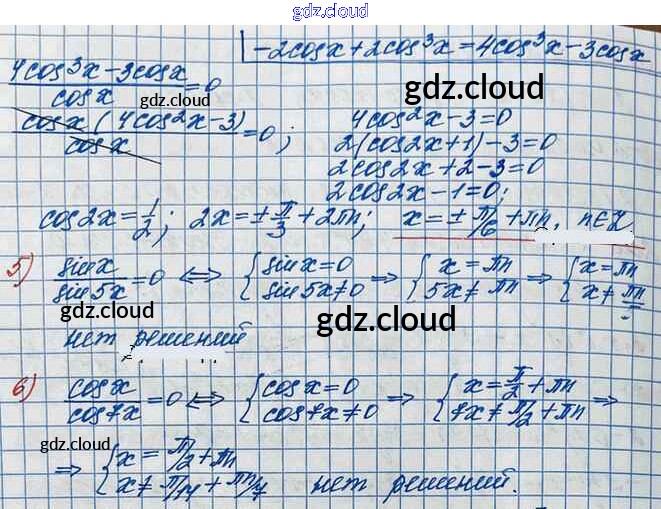 gdz.cloud
-2cosx+2cos³x=4cos³x-3cosx
4cos³x-3cosx/cosx=0
gdz.cloud gdz.cloud
cosx(4cos²x-3)/cosx=0; 4cos²x-3=0
2(cos2x+1)-3=0
2cos2x+2-3=0
2cos2x-1=0;
cos2x=1/2; 2x=±π/3+2πn; x=±π/6+πn, n∈Z
5) sinx/sin5x=0 ⇔ {sinx=0 sin5x≠0 ⇒ {x=πn 5x≠πn ⇒ {x=πn x≠πn/5
нет решений gdz.cloud
6) cosx/cos7x=0 ⇔ {cosx=0 cos7x≠0 ⇒ {x=π/2+πn 7x≠π/2+πn ⇒
gdz.cloud gdz.cloud
⇒ {x=π/2+πn x≠π/14+πn/7 нет решений.
gdz.cloud